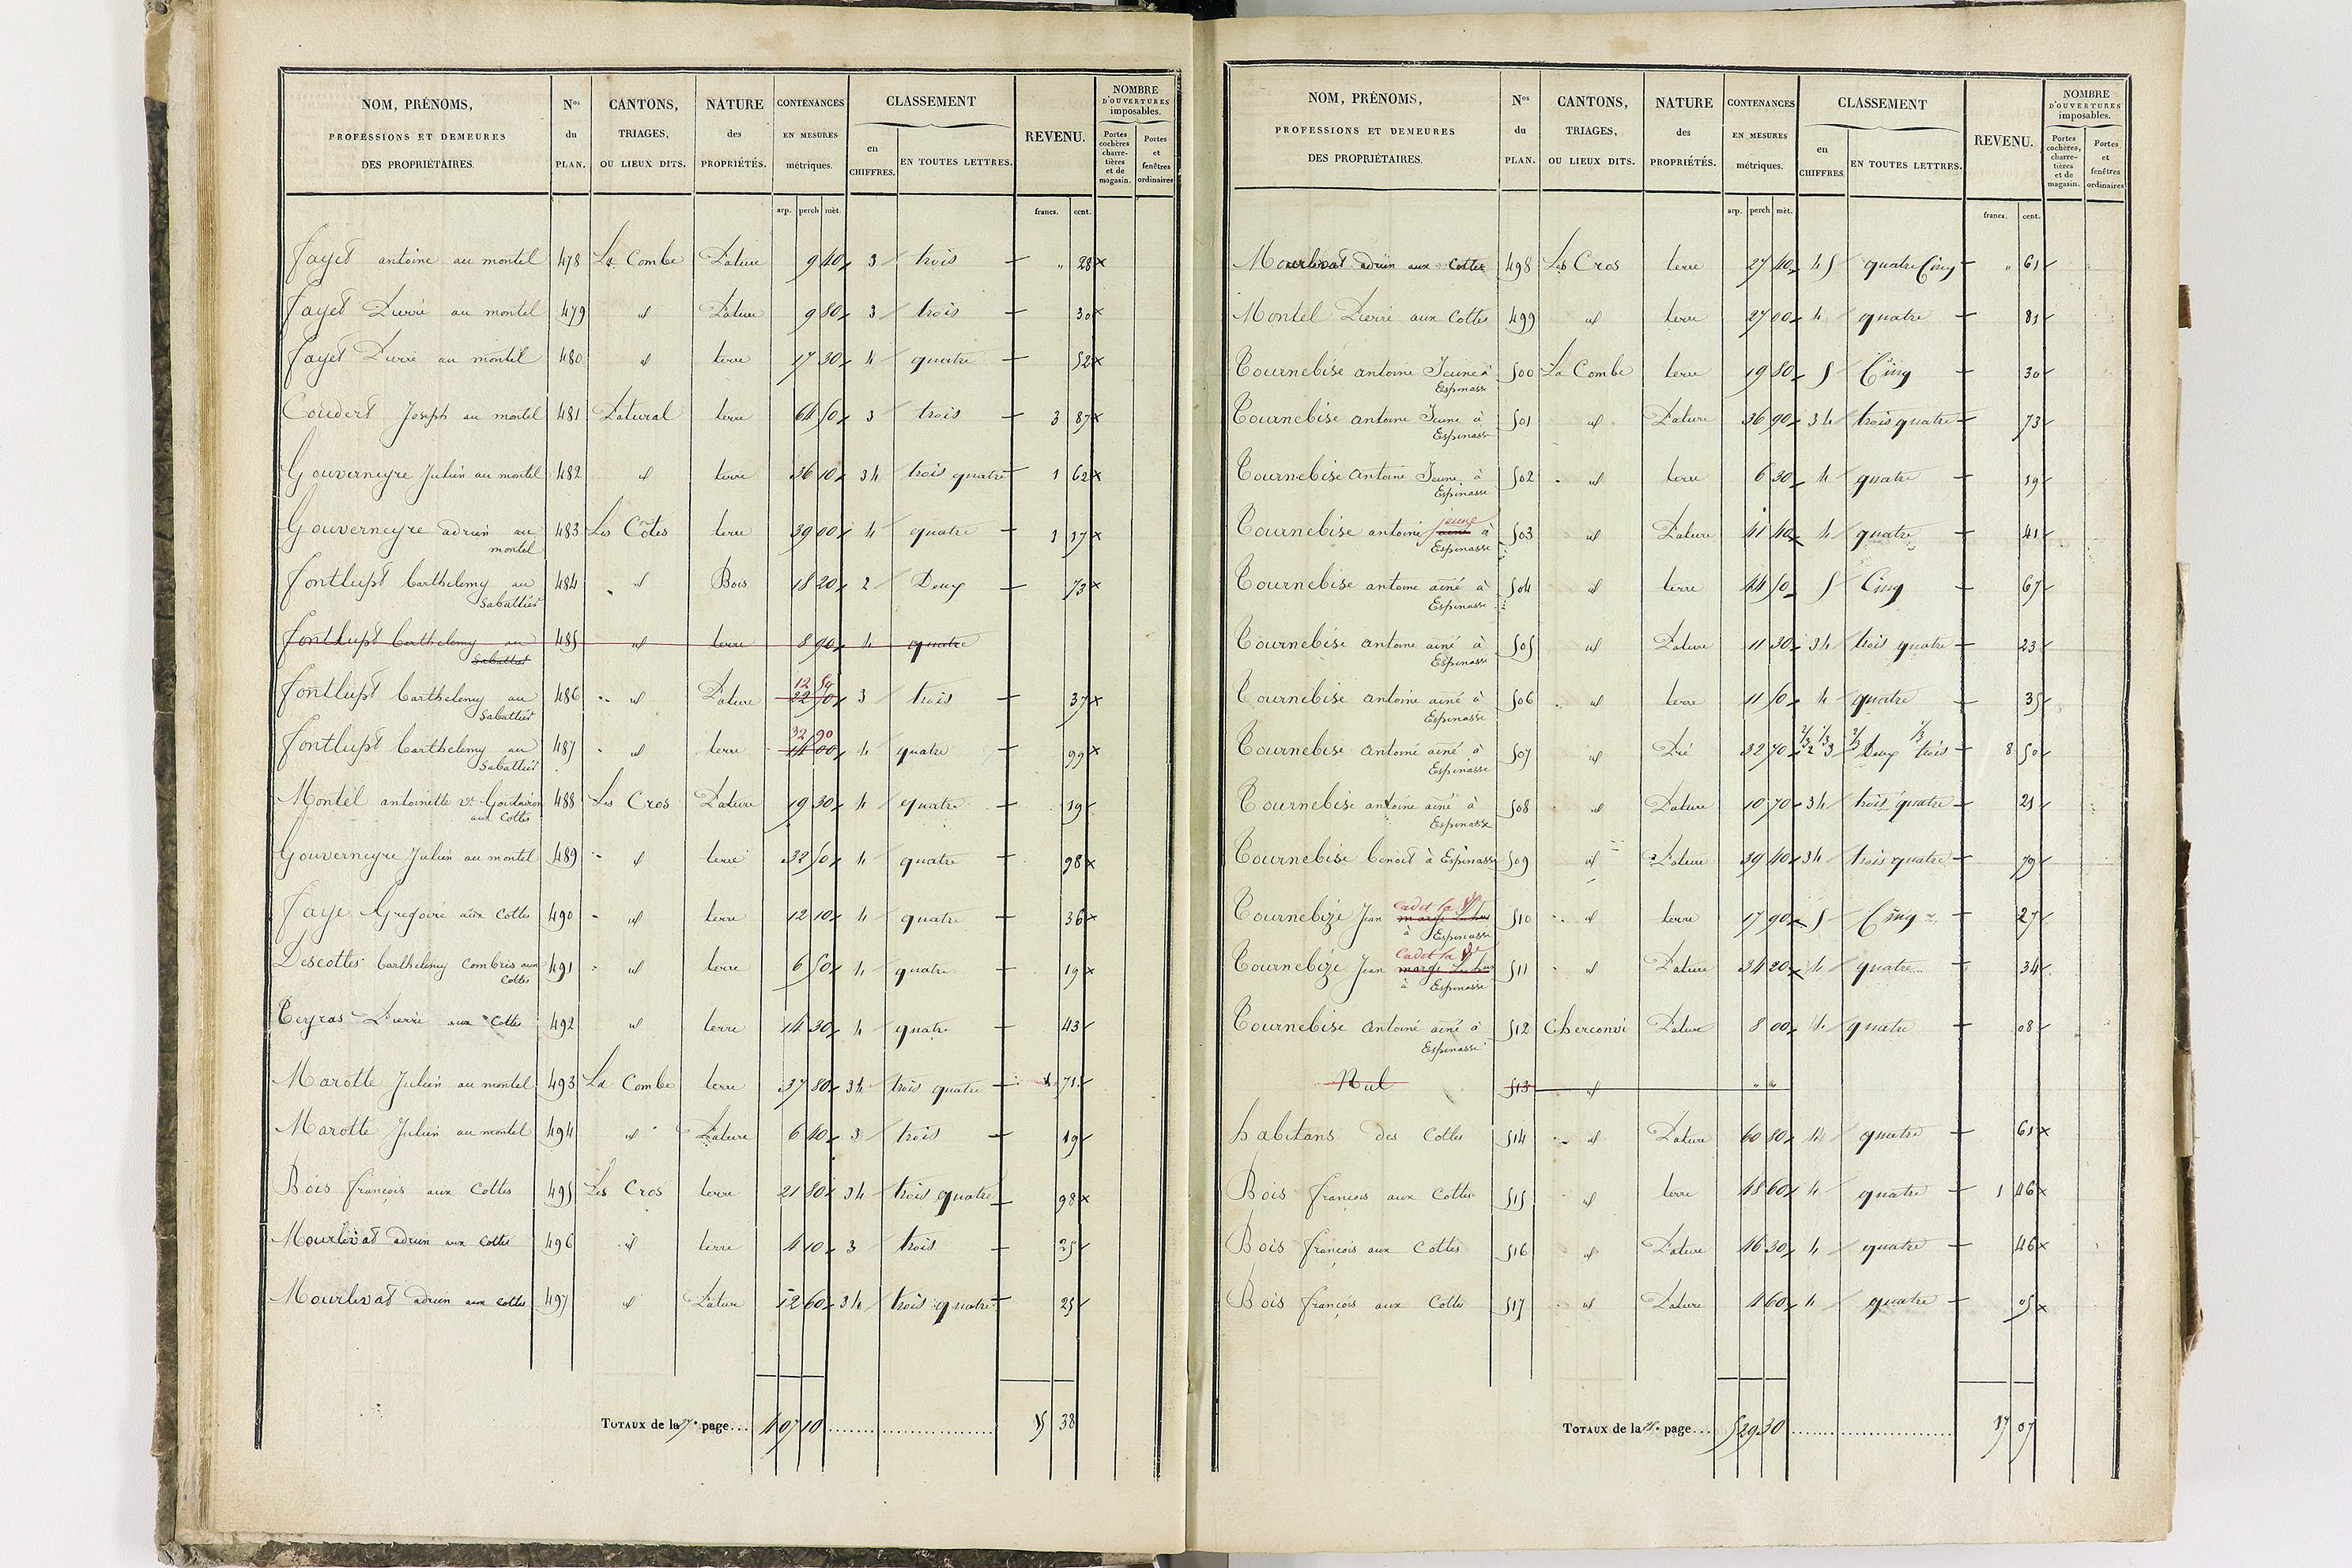 NOM, PRÉNOMS, PROFESSIONS ET DEMEURES DES PROPRIÉTAIRES. Nos du PLAN. CANTONS, TRIAGES, OU LIEUX DITS. NATURE des PROPRIÉTÉS. CONTENANCES EN MESURES métriques. CLASSEMENT en CHIFFRES. EN TOUTES LETTRES. REVENU. NOMBRE D'OUVERTURES imposables. Portes cochères charretières et de magasin. Portes et fenêtres ordinaires
arp. perch mèt. francs. cent.
fayet antoine au montel 478 La Combe Pature 9 40 3 trois " 28
fayet Pierre au montel 479 id Pature 9 80 3 trois 30
fayet Pierre au montel 480 id terre 17 30 4 quatre 52
Coudert Joseph au montel 481 Patural terre 64 50 3 trois 3 87
Gouverneyre Julien au montel 482 id terre 36 10 3 4 trois quatre 1 62
Gouverneyre adrien au montel 483 Les Côtes terre 39 00 4 quatre 1 17
fontlupt barthelemy au Sabattier 484 id Bois 18 20 2 Deux 73
fontlupt barthelemy au Sabattier 485 id terre 8 90 4 quatre
fontlupt barthelemy au Sabattier 486 id Pature 12 50 22 50 3 trois 37
fontlupt barthelemy au Sabattier 487 id terre 32 90 14 00 4 quatre 99
Montel antoinette ve Goutairon aux Cottes 488 Les Cros Pature 19 30 4 quatre 19
Gouverneyre Julien au montel 489 id terre 32 50 4 quatre 98
faye Gregoire aux Cottes 490 id terre 12 10 4 quatre 36
Descottes barthelemy Combris aux Cottes 491 id terre 6 50 4 quatre 19
Teyras Pierre aux Cottes 492 id terre 14 30 4 quatre 43
Marotte Julien au montel 493 La Combe terre 37 80 3 4 trois quatre 1 71
Marotte Julien au montel 494 id Pature 6 40 3 trois 19
Bois françois aux Cottes 495 Les Cros terre 21 80 3 4 trois quatre 98
Mourlevat adrien aux Cottes 496 id terre 4 10 3 trois 25
Mourlevat adrien aux Cottes 497 id Pature 12 60 3 4 trois quatre 25
TOTAUX de la page... 4 07 10 15 38
NOM, PRÉNOMS, PROFESSIONS ET DEMEURES DES PROPRIÉTAIRES. Nos du PLAN. CANTONS, TRIAGES, OU LIEUX DITS. NATURE des PROPRIÉTÉS. CONTENANCES EN MESURES métriques. CLASSEMENT en CHIFFRES. EN TOUTES LETTRES. REVENU. NOMBRE D'OUVERTURES imposables. Portes cochères, charretières et de magasin. Portes et fenêtres ordinaires
arp. perch mèt. francs. cent.
Mourlevat adrien aux Cottes 498 Les Cros terre 27 40 4 5 quatre Cinq " 61
Montel Pierre aux Cottes 499 id terre 27 00 4 quatre 81
Tournebise antoine Jeune à Espinasse 500 La Combe terre 19 80 5 Cinq 30
Tournebise antoine Jeune à Espinasse 501 id Pature 36 90 3 4 trois quatre 73
Tournebise antoine Jeune à Espinasse 502 id terre 6 30 4 quatre 19
Tournebise antoine jeune ainé à Espinasse 503 id Pature 41 40 4 quatre 41
Tournebise antoine ainé à Espinasse 504 id terre 44 50 5 Cinq 67
Tournebise antoine ainé à Espinasse 505 id Pature 11 30 3 4 trois quatre 23
Tournebise antoine ainé à Espinasse 506 id terre 11 50 4 quatre 35
Tournebise antoine ainé à Espinasse 507 id Pré 32 70 2/3 2 1/3 3 2/3 Deux 1/3 trois 8 50
Tournebise antoine ainé à Espinasse 508 id Pature 10 70 3 4 trois quatre 21
Tournebise benoit à Espinasse 509 id Pature 39 40 3 4 trois quatre 79
Tournebize Jean cadet la ve à Espinasse 510 id terre 17 90 5 Cinq 27
Tournebize Jean Cadet la ve à Espinasse 511 id Pature 34 20 4 quatre 34
Tournebise antoine ainé à Espinasse 512 Cherconvi Pature 8 00 4 quatre 08
Nul 513 id " "
habitans des Cottes 514 id Pature 60 80 4 quatre 61
Bois françois aux Cottes 515 id terre 48 60 4 quatre 1 46
Bois françois aux Cottes 516 id Pature 46 30 4 quatre 46
Bois françois aux Cottes 517 id Pature 4 60 4 quatre 05
TOTAUX de la page... 5 29 30 17 07